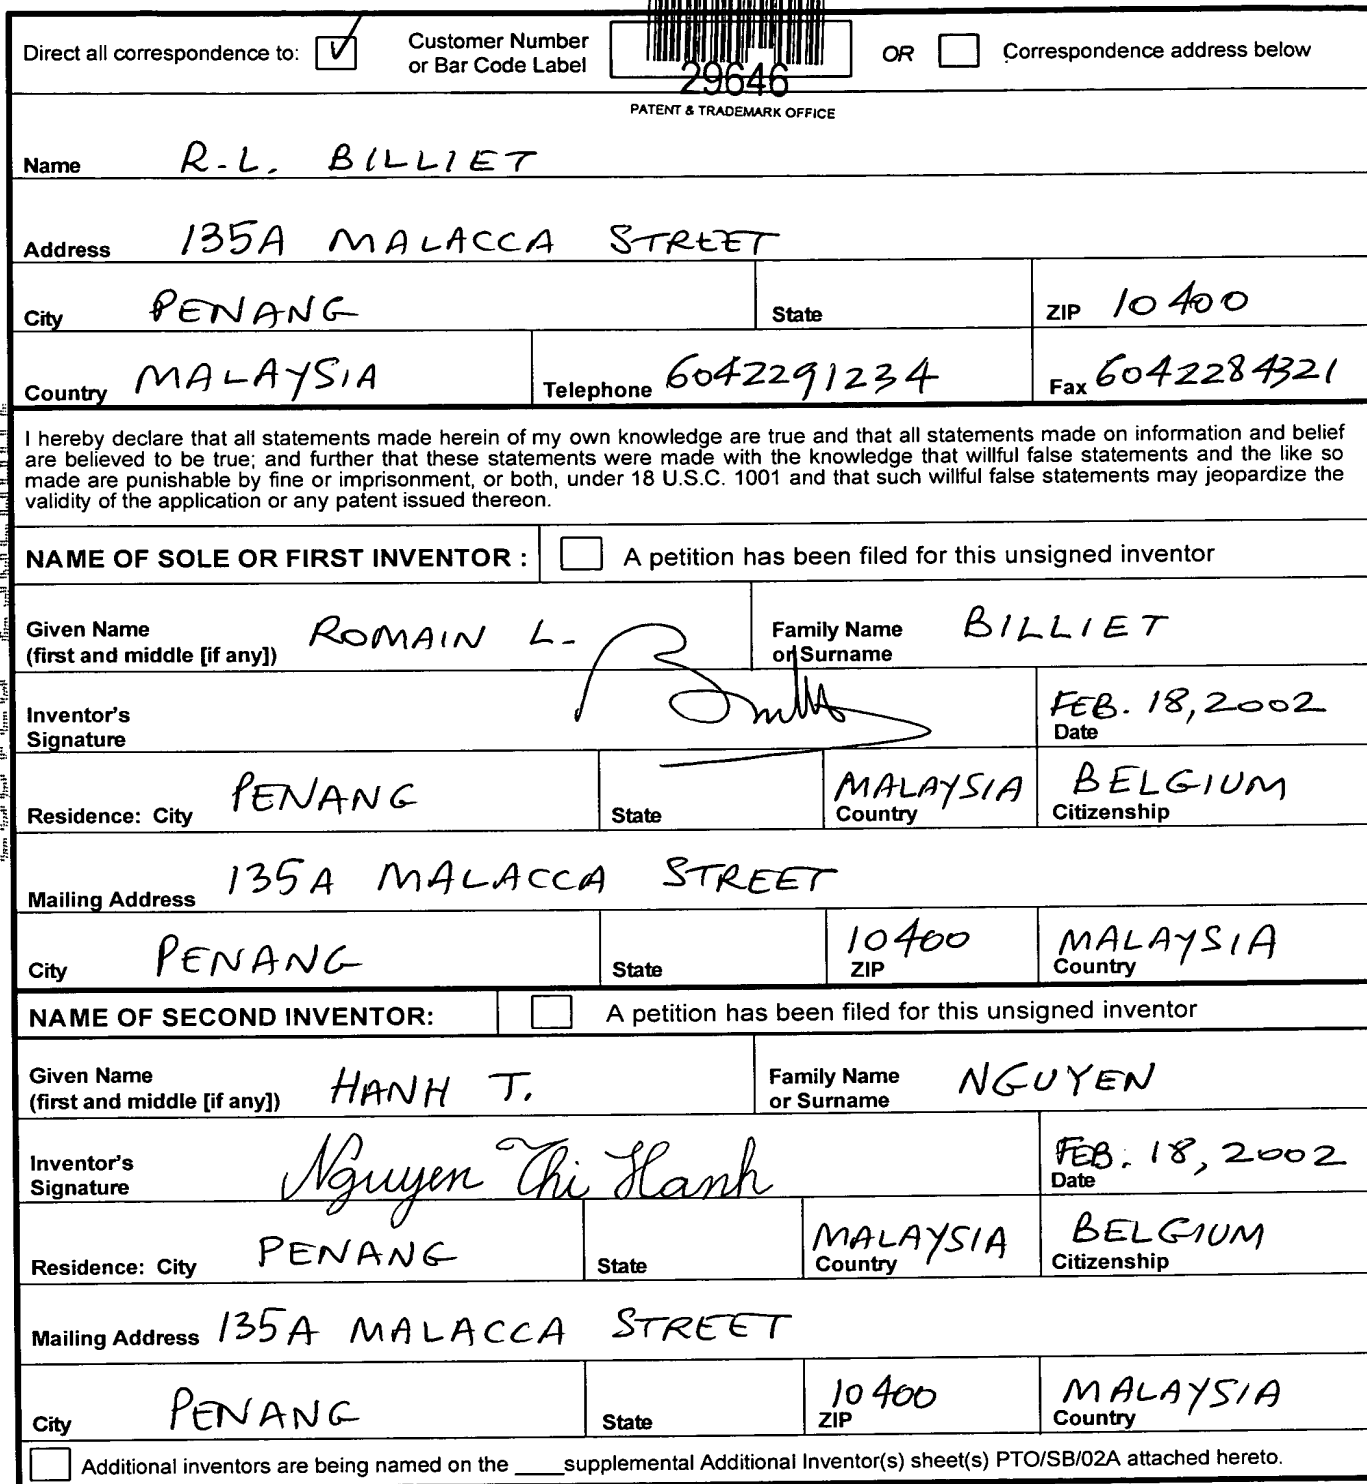 Direct all correspondence to: Customer Number or Bar Code Label OR Correspondence address below
29646
PATENT & TRADEMARK OFFICE
Name R.L. BILLIET
Address 135A MALACCA STREET
City PENANG State ZIP 10400
Country MALAYSIA Telephone 6042291234 Fax 6042284321
I hereby declare that all statements made herein of my own knowledge are true and that all statements made on information and belief
are believed to be true; and further that these statements were made with the knowledge that willful false statements and the like so
made are punishable by fine or imprisonment, or both, under 18 U.S.C. 1001 and that such willful false statements may jeopardize the
validity of the application or any patent issued thereon.
NAME OF SOLE OR FIRST INVENTOR : A petition has been filed for this unsigned inventor
Given Name (first and middle [if any]) ROMAIN L. Family Name or Surname BILLIET
Inventor's Signature FEB. 18, 2002 Date
Residence: City PENANG State MALAYSIA Country BELGIUM Citizenship
Mailing Address 135A MALACCA STREET
City PENANG State 10400 ZIP MALAYSIA Country
NAME OF SECOND INVENTOR: A petition has been filed for this unsigned inventor
Given Name (first and middle [if any]) HANH T. Family Name or Surname NGUYEN
Inventor's Signature Nguyen Thi Hanh FEB. 18, 2002 Date
Residence: City PENANG State MALAYSIA Country BELGIUM Citizenship
Mailing Address 135A MALACCA STREET
City PENANG State 10400 ZIP MALAYSIA Country
Additional inventors are being named on the ___supplemental Additional Inventor(s) sheet(s) PTO/SB/02A attached hereto.